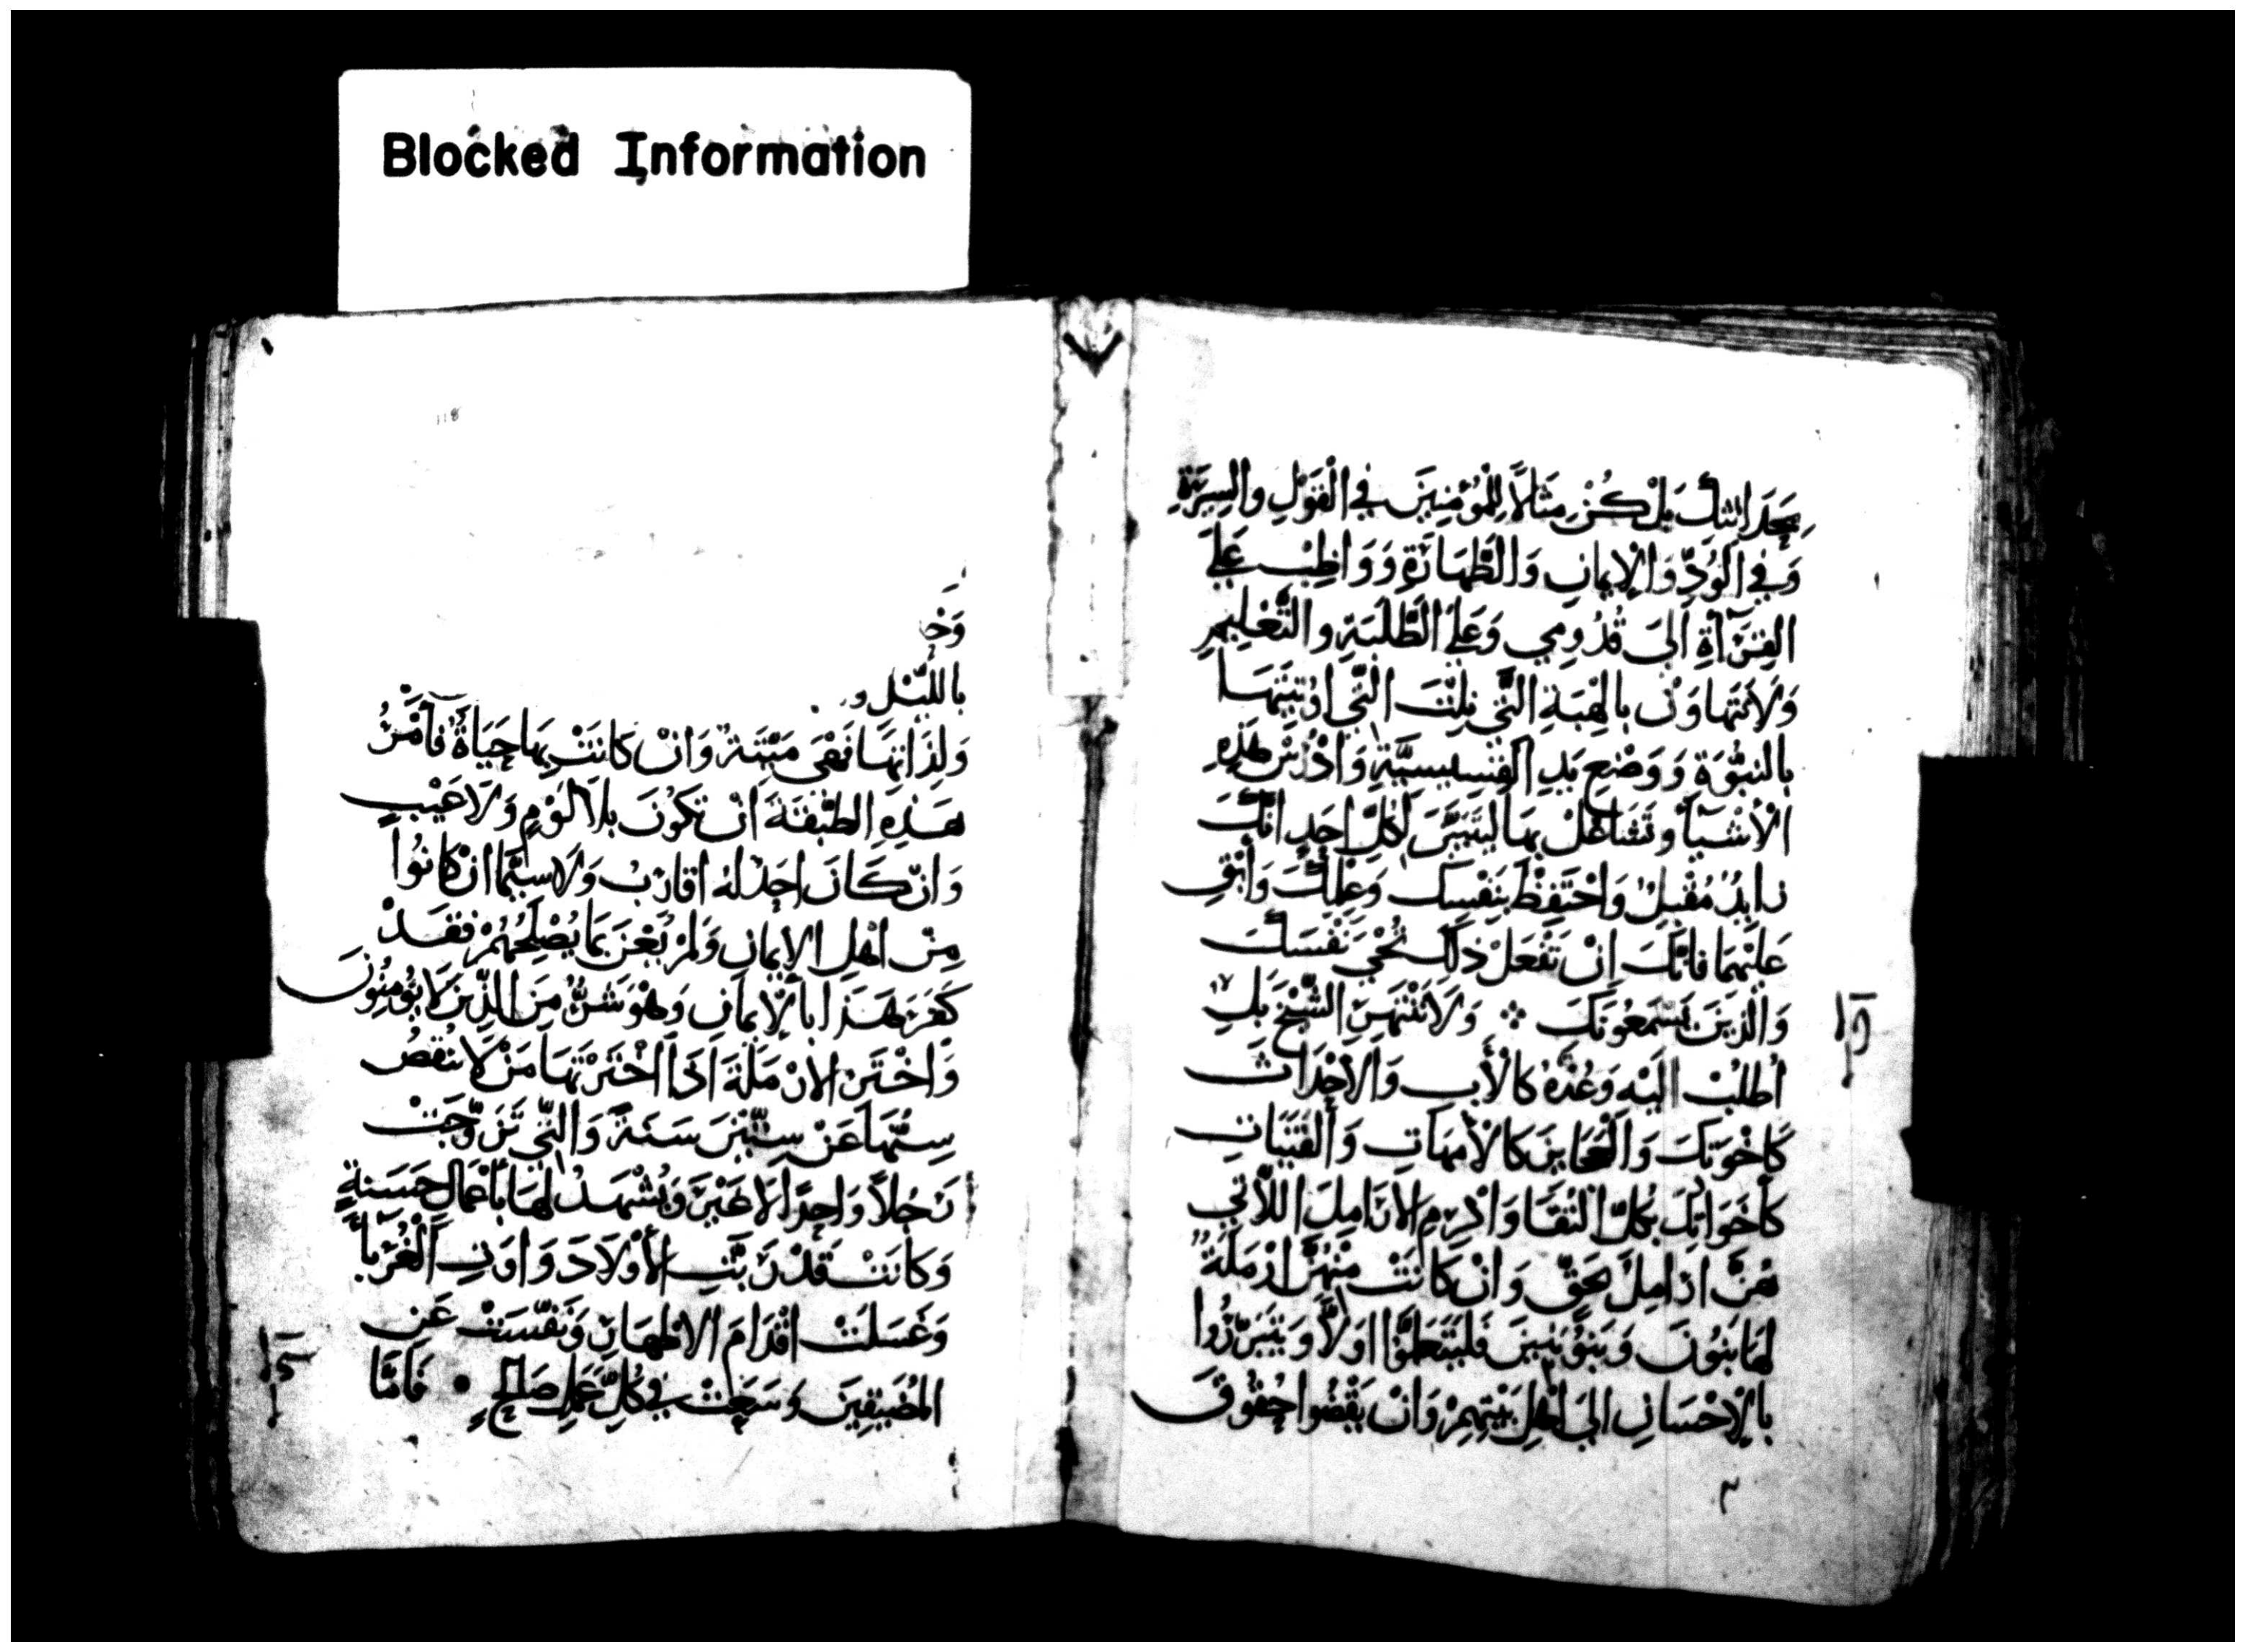 Blocked Information
بِحَدَاثَتِكَ بَلْ كُنْ مِثَالاً لِلْمُؤْمِنِينَ فِي الْقَوْلِ وَالسِيرَةِ
وَفِي الْوُدِّ وَالْإِيمَانِ وَالطَّهَارَةِ وَوَاظِبْ عَلَى
القِرَآةِ اَلِيَ قُدُومِي وَعَلَى الطَّلِبَةِ وَالتَّعْلِيمِ
وَلَا تَتَهَاوَنْ بِالْهِبَةِ الَّتِي نِلْتَ الَّتِي اوتِيتَهَا
بِالنبُّوَةِ وَوَضْعِ يَدِ القِسِيسِيَّةِ وَادْرُسْ هَذِهِ
الْأَشْيَآءَ وَتَشَاغَلْ بِهَا لِيَتَبَيَّنَ لِكُلِّ احَدٍ انَّكَ
زايدٌ مُقْبِلٌ وَاحْتَفِظْ بِنَفْسِكَ وَعِلْمِكَ وَابْقِ
عَلَيْهِمَا فَانَّكَ اِنْ تَفْعَلْ ذَلِكَ تُحْيِي نَفْسَكَ
وَالَّذِينَ يَسْمَعُونَكَ ⁘ وَلَا تَنْتَهِرَنَّ الشَّيْخَ بَلِ
اُطْلُبْ الَيْهِ وَعُدَّهُ كَالْأَبِ وَالْأَحْدَاثَ
كَاخْوَتِكَ وَالْعَجَايِزَ كَالْأُمَّهَاتِ وَالْفَتَيَاتِ
كَأَخَوَاتِكَ بِكُلِّ النَّقَا وَاكْرِمِ الْارَامِلَ اللاَّتِي
هُنَّ ارَامِلُ بِحَقٍّ وَانْ كَانَتْ مِنْهُنَّ ارْمَلَةٌ
لَهَا بَنُونَ وَبَنُو بَنِينَ فَلْيَتَعَلَّمُوا اوَّلاً وَيَتَبَرَّرُوا
بِالْإِحْسَانِ الَى اهْلِ بَيْتِهِمْ وَانْ يَقْضُوا حُقُوقَ
118
وَحْ
بِاللَّيْلِ و
وَلِذَاتِهَا فَهْيَ مَيِّتَةٌ وَانْ كَانَتْ بِهَا حَيَاةٌ فَأْمُرْ
هَذِهِ الطَّبَقَةَ انْ تَكُونَ بِلاَ لَوْمٍ وَلَا عَيْبٍ
وَانْ كَانَ احَدٌ لَهُ اقَارِبُ وَلَا سِيَّمَا انْ كَانُوا
مِنْ اهْلِ الايمَانِ وَلَمْ يُعْنَ بِمَا يُصْلِحُهُمْ فَقَدْ
كَفَرَ هَذَا بِالْإِيمَانِ وَهْوَ شَرٌّ مِنَ الَّذِينَ لَا يُؤمِنُونَ
وَاخْتَرِ الارْمَلَةَ اذَا اخْتَرْتَهَا مَنْ لَا يَنْقُصُ
سِنُّهَا عَنْ سِتِّينَ سَنَةً وَالَّتِي تَزَوَّجَتْ
رَجُلاً وَاحِدًا لَا غَيْرَ وَيُشْهَدُ لَهَا بِأَعْمَالٍ حَسَنَةٍ
وَكَانَتْ قَدْ رَبَّتِ الْأَوْلَادَ وَاوَتِ الْغُرَبَآءَ
وَغَسَلَتْ اقْدَامَ الاطْهَارِ وَنَفَّسَتْ عَنِ
الْمُضَيَّقِينَ وَسَعَتْ فِي كُلِّ عَمَلٍ صَالِحٍ • فَأمَّا